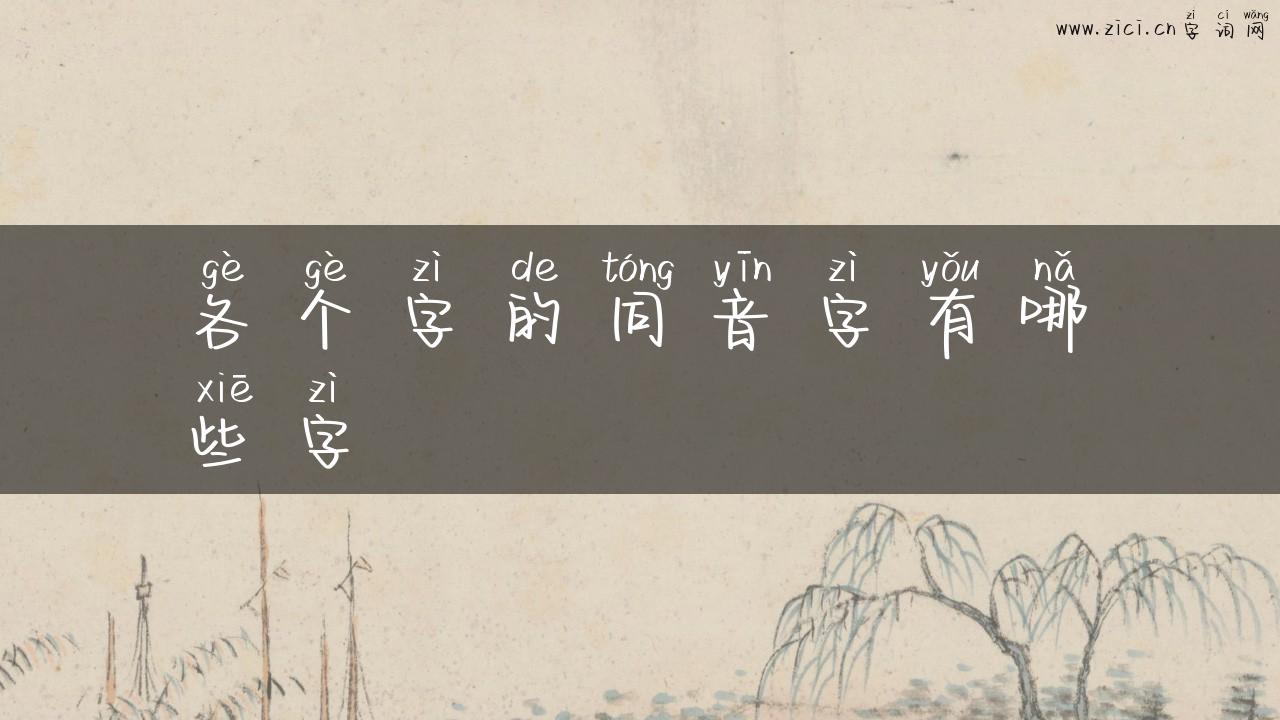 zì cí wǎng
www.zici.cn字词网
gè gè zì de tóng yīn zì yǒu nǎ
各个字的同音字有哪
xiē zì
些字